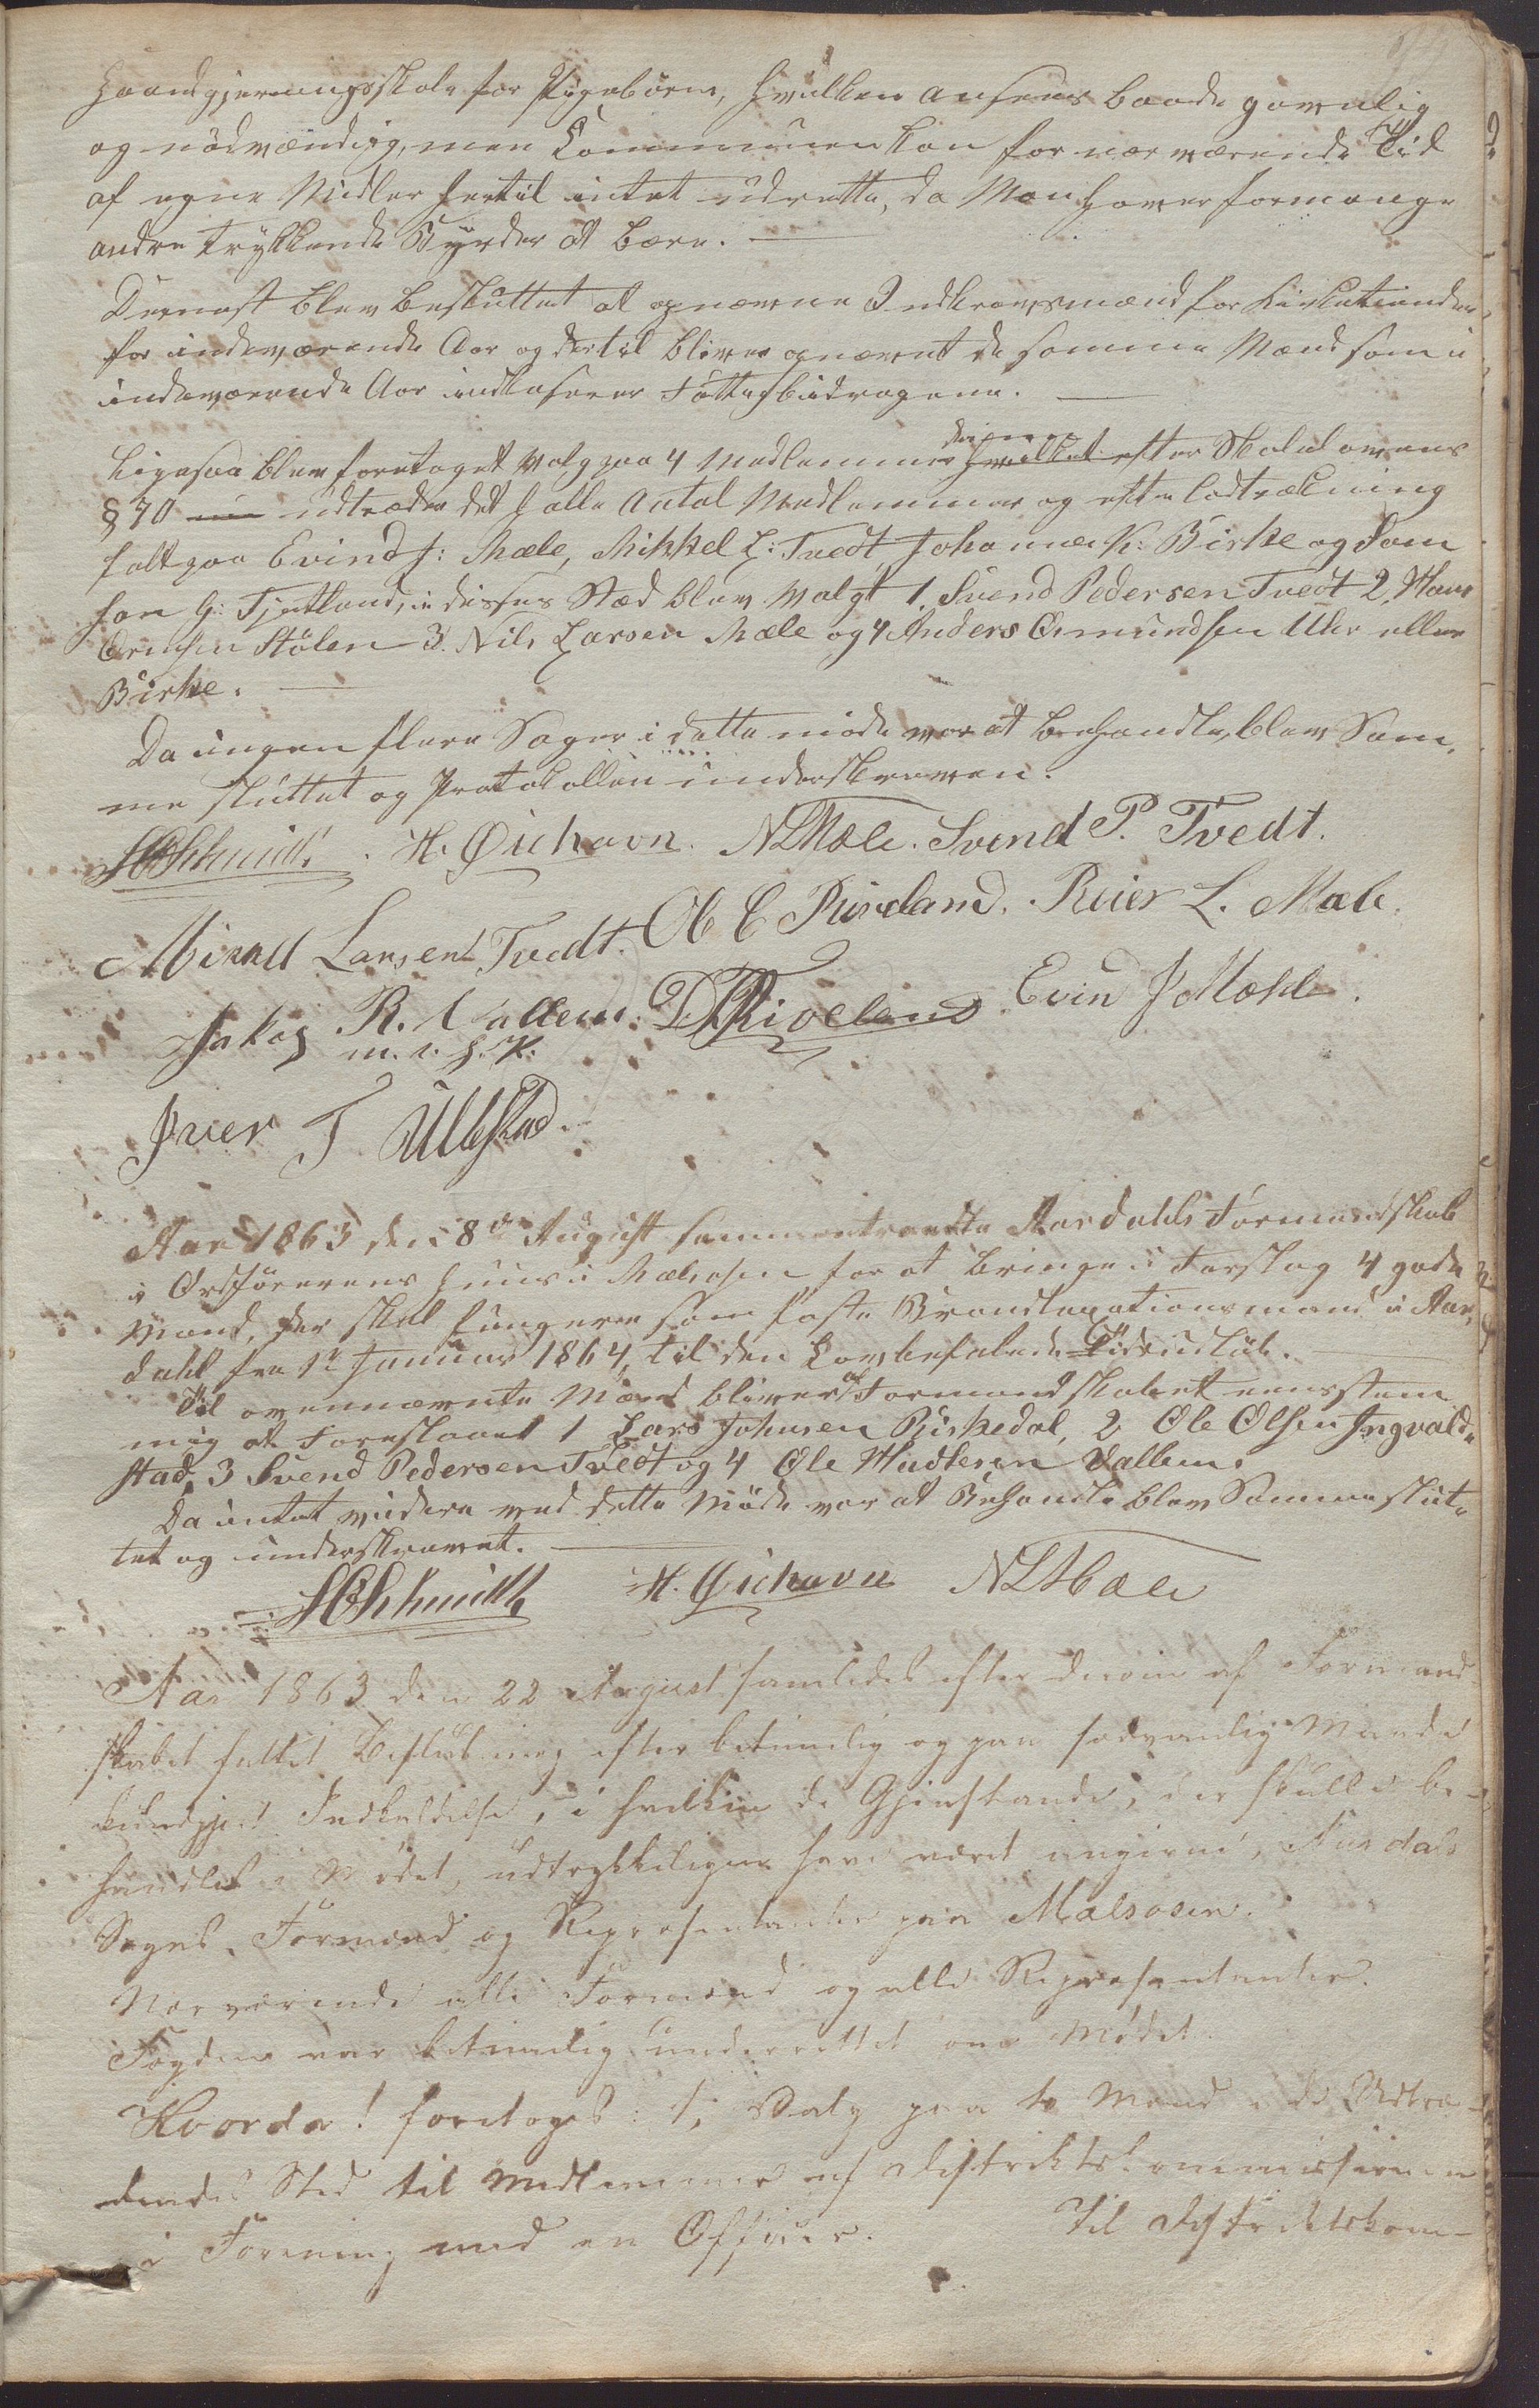 Haandgjerningsskole for Pigebørn, hvilken ansees baade gavnlig
og nødvændigg, men Communen kan for nærværende Tid
af egne Midler hertil intet udrette, da Man haver for mange
andre trykkende Byrder at bære. —
Dernæst blev besluttet at opnævne Indkrævsmænd for Kirketienden
for indeværende Aar og dertil bliver opnævnt de samme Mænd som i
indeværende Aar indkaserer Fattigbidragene. —
Ligesaa blev foretaget Valg paa 4 Medlemmer hvilket efter Skolelovens
§ 70 udtræder det halle Antal Medlemmer og efter Lodtrækning
falt paa Evind J: Mæle, Mikkel L: Tvedt, Johannes K: Birke og Sam
son G: Tjetland, i disses Sted blev Valgt 1. Svend Pedersen Tvedt 2. Hans
Stølen 3. Nils Larsen Mæle og 4 Anders Osmundsen Uhr eller
Birke. —
Da ingen flere Sager i dette møde var at behandle, blev Sam,
me sluttet og Protokollen underskreven.
H Schmidt. H. Øichavn. N L Mæle. Svend P. Tvedt.
Larsen Tvedt. Ole E Riveland. Reier L. Mæle.
Jakob R. Vallem. D Riveland. Evin J Mæhle.
m. i. h. P.
Iver T Ullestad.
Aar 1863 den 8de August sammentraadte Aardahls Formandskab
i Ordførerens Huus i Mælsosen for at bringe i Forslag 4 gode
Mænd, der skal fungere som faste Brandtaxationsmænd i Aar,
dahl fra 1te Januar 1864, til den Lovbefalede Tidsudløb. —
Til ovennævnte Mænd bliver af Formandskabet eensstem
mig at Foreslaaet 1 Lars Johnsen Riskedal, 2 Ole Olsen Ingvald-
stad, 3 Svend Pedersen Tvedt og 4 Ole Hudlesen Vallem.
Da intet videre ved dette Møde var at Behandle blev Samme slut-
tet og underskrevet. —
H Schmidt H. Øichavn N L Mæle
Aar 1863 den 22 August samledes efter derom af Formand-
skabet fattet Beslutning efter betimelig og paa sædvanlig Maade
kundgjort Indkaldelse, i hvilken de Gjenstande, der skulle be-
handles i Mødet, udtrykkeligen have været angivne, Aardals
Sogns Formænd og Representanter paa Mælsosen.
Nærværende alle Formænd og alle Representanter.
Fogden var betimelig underrettet om Mødet.
Hvorda! foretoges: 1, Valg paa to Mænd i de Udtræ-
dendes Sted til Medlemmer af Distriktskommissionen
i Forening med en Officer. Til Distriktskom-